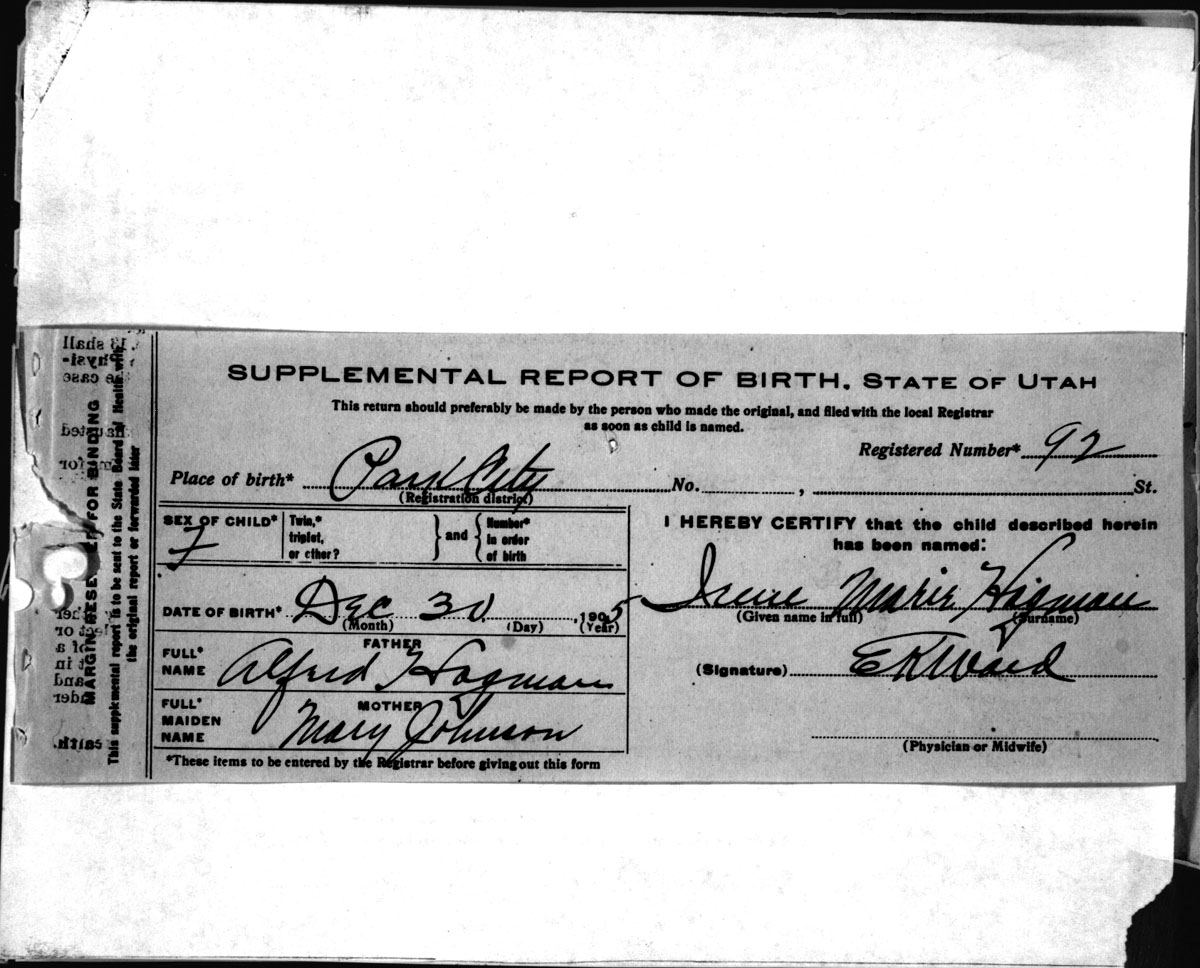 SUPPLEMENTAL REPORT OF BIRTH. STATE OF UTAH
This return should preferably be made by the person who made the original, and filed with the local Registrar
as soon as child is named.
Registered Number* 92
Place of birth* Park City No. , St.
(Registration district)
SEX OF CHILD* F
Twin,* triplet, or other? } and { Number* in order of birth
I HEREBY CERTIFY that the child described herein
has been named:
Irene Marie Hagman
(Given name in full) (Surname)
DATE OF BIRTH* Dec 30 , 1905
(Month) (Day) (Year)
FATHER
FULL* NAME Alfred Hagman
(Signature) E R Ward
MOTHER
FULL* MAIDEN NAME Mary Johnson
(Physician or Midwife)
*These items to be entered by the Registrar before giving out this form
FOR BINDING
This supplemental report is to be sent to the State Board of Health with
the original report or forwarded later